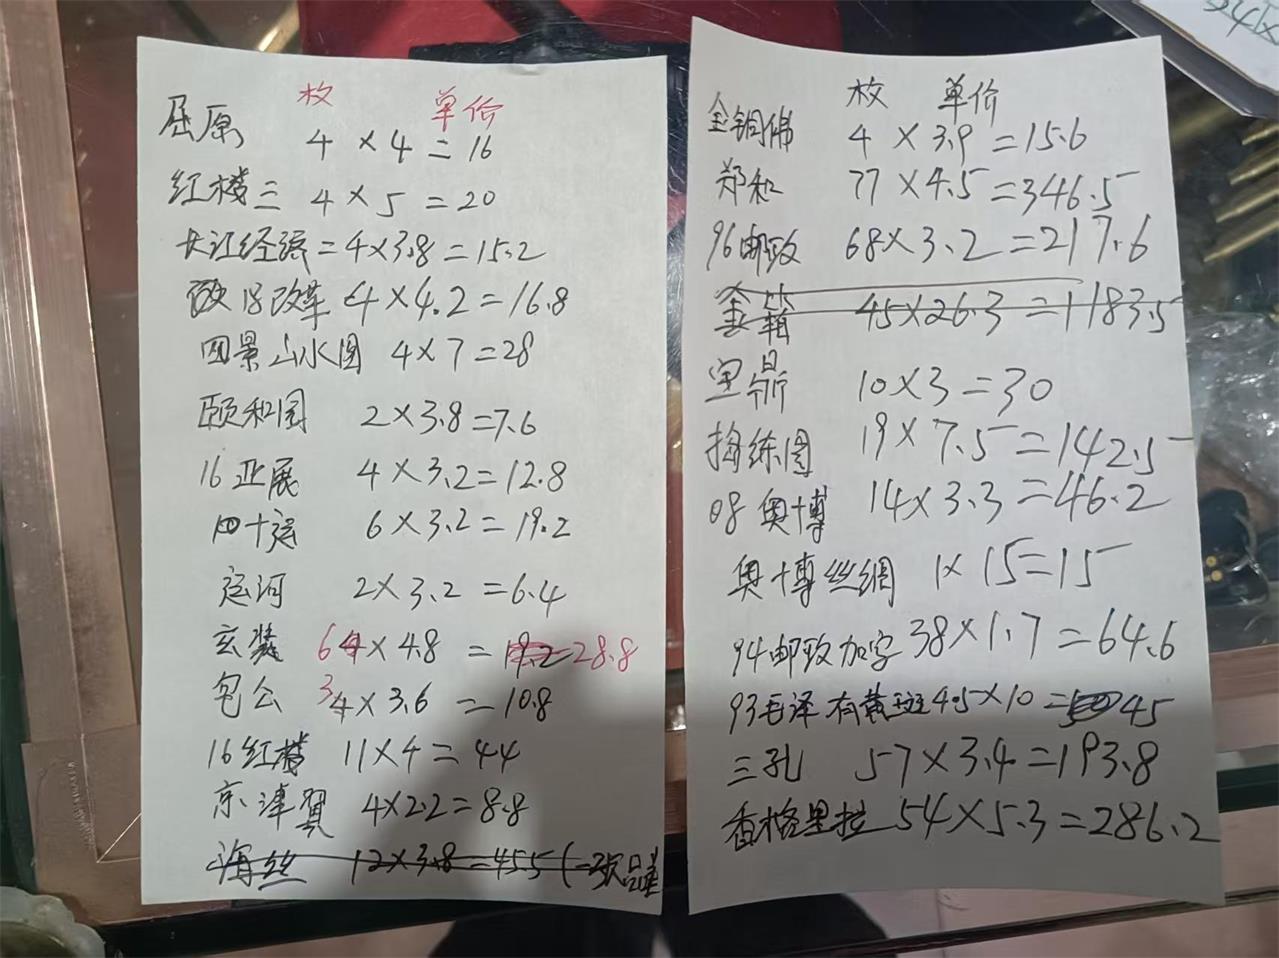 枚 单价
屈原 4×4=16
红楼三 4×5=20
长江经济=4×3.8=15.2
改18改革 4×4.2=16.8
四景山水图 4×7=28
颐和园 2×3.8=7.6
16亚展 4×3.2=12.8
四十运 6×3.2=19.2
运河 2×3.2=6.4
玄奘 6×4.8=28.8
包公 3×3.6=10.8
16红楼 11×4=44
京津翼 4×2.2=8.8
海丝 12×3.8=45.5(一张品差
枚 单价
金铜佛 4×3.9=15.6
郑和 77×4.5=346.5
96邮政 68×3.2=217.6
金箔 45×26.3=1183.5
宝鼎 10×3=30
捣练图 19×7.5=142.5
08奥博 14×3.3=46.2
奥博丝網 1×15=15
94邮政加字 38×1.7=64.6
93毛泽 有黄斑 4.5×10=45
三孔 57×3.4=193.8
香格里拉 54×5.3=286.2